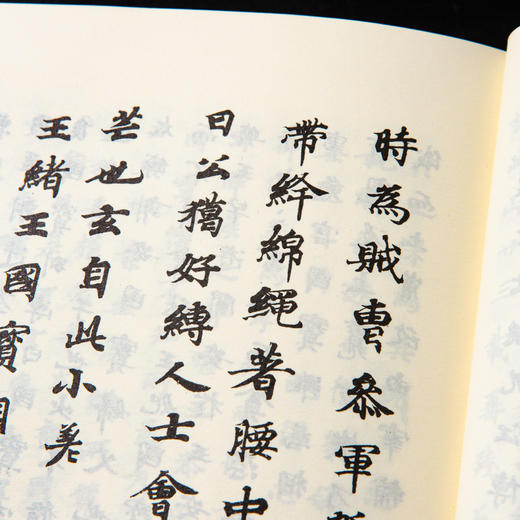 時為賊曹叅軍
帶絳綿繩著腰中
曰公獵好縛人士會
芒也玄自此小差
王緒王國寶相